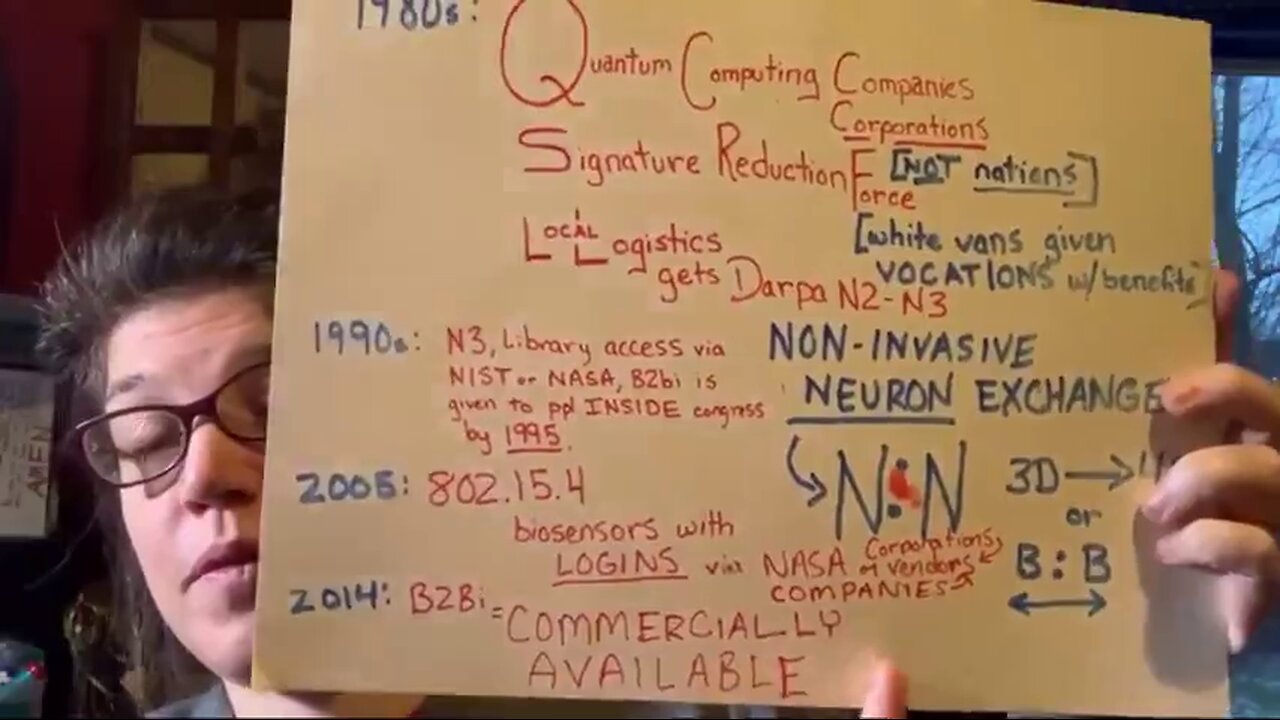 1980s:
Quantum Computing Companies
Corporations
Signature Reduction Force [NOT nations]
Local Logistics [white vans given
gets Darpa N2-N3 VOCATIONS w/benefits]
1990s: N3, Library access via
NIST or NASA, B2bi is
given to ppl INSIDE congress
by 1995.
NON-INVASIVE
NEURON EXCHANGE
N:N
3D→
or
B:B
2005: 802.15.4
biosensors with
LOGINS via NASA Corporations,
or vendors
COMPANIES
2014: B2Bi = COMMERCIALLY
AVAILABLE
AMEN